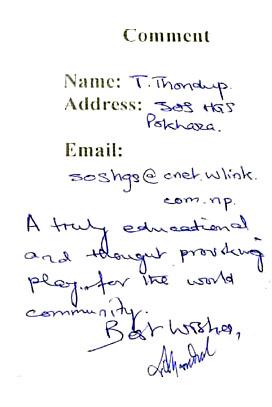 Comment
Name: T. Thondup.
Address: SOS HGS
Pokhara.
Email:
soshgs@cnet.wlink.
com.np.
A truly educational
and thought provoking
play..for the world
community.
Best Wishes,